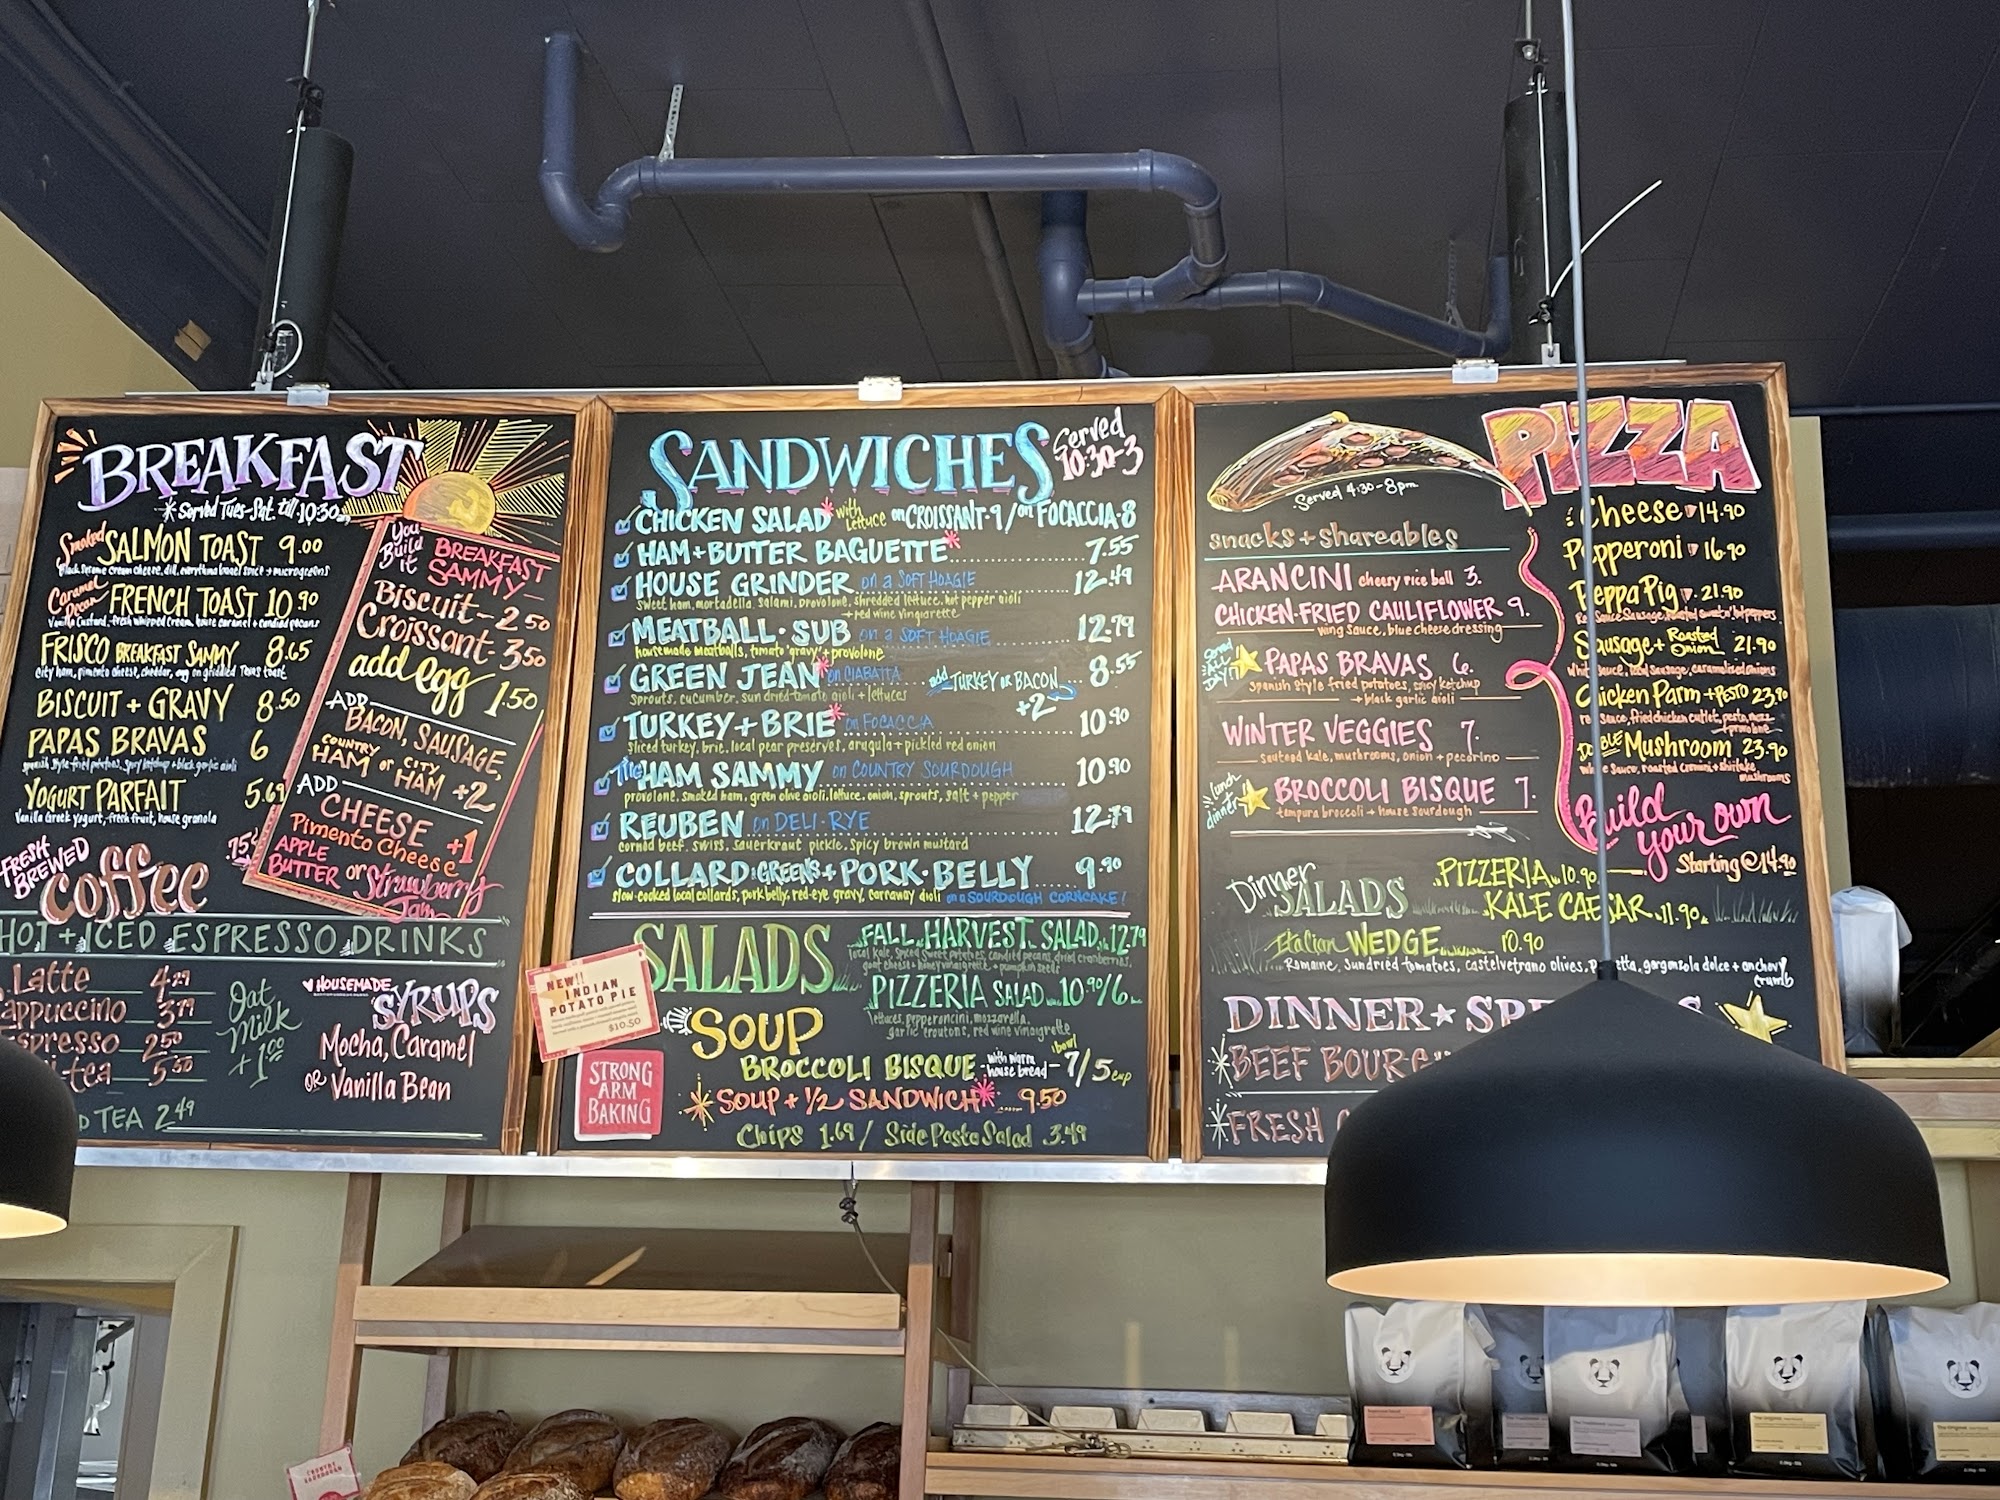 BREAKFAST
*Served Tues-Sat. till 10:30
Smoked SALMON TOAST 9.00
black sesame cream cheese, dill, everything bagel spice + microgreens
Caramel Pecan FRENCH TOAST 10.90
Vanilla Custard, fresh whipped cream, house caramel + candied pecans
FRISCO BREAKFAST SAMMY 8.65
city ham, pimento cheese, cheddar, egg on griddled Texas toast
BISCUIT + GRAVY 8.50
PAPAS BRAVAS 6
spanish style fried potatoes, spicy ketchup + black garlic aioli
YOGURT PARFAIT 5.69
Vanilla Greek yogurt, fresh fruit, house granola
You Build it BREAKFAST SAMMY
Biscuit - 2.50
Croissant - 3.50
add egg 1.50
ADD
BACON, SAUSAGE,
COUNTRY HAM or CITY HAM +2
ADD
CHEESE
Pimento Cheese +1
75¢ APPLE BUTTER or Strawberry Jam
FRESH BREWED coffee
HOT + ICED ESPRESSO DRINKS
Latte 4.29
appuccino 3.79
spresso 2.50
tea 5.50
TEA 2.49
Oat Milk +1.00
HOUSEMADE SYRUPS
Mocha, Caramel
OR Vanilla Bean
SANDWICHES Served 10:30-3
CHICKEN SALAD* with lettuce on CROISSANT · 9 / on FOCACCIA · 8
HAM + BUTTER BAGUETTE* 7.55
HOUSE GRINDER on a SOFT HOAGIE 12.49
sweet ham, mortadella, salami, provolone, shredded lettuce, hot pepper aioli
+ red wine vinaigrette
MEATBALL · SUB on a SOFT HOAGIE 12.79
housemade meatballs, tomato 'gravy' + provolone
GREEN JEAN* on CIABATTA add TURKEY OR BACON +2 8.55
sprouts, cucumber, sun dried tomato aioli + lettuces
TURKEY + BRIE* on FOCACCIA 10.90
sliced turkey, brie, local pear preserves, arugula + pickled red onion
The HAM SAMMY on COUNTRY SOURDOUGH 10.90
provolone, smoked ham, green olive aioli, lettuce, onion, sprouts, salt + pepper
REUBEN on DELI-RYE 12.79
corned beef, swiss, sauerkraut pickle, spicy brown mustard
COLLARD GREENS + PORK · BELLY 9.90
slow-cooked local collards, pork belly, red-eye gravy, carraway aioli on a SOURDOUGH CORNCAKE!
SALADS
FALL HARVEST SALAD 12.79
local kale, spiced sweet potatoes, candied pecans, dried cranberries,
goat cheese + honey vinaigrette + pumpkin seeds
PIZZERIA SALAD 10.90/6
lettuces, pepperoncini, mozzarella,
garlic croutons, red wine vinaigrette
NEW!!
INDIAN
POTATO PIE
$10.50
SOUP
BROCCOLI BISQUE with warm house bread - 7 bowl / 5 cup
*SOUP + 1/2 SANDWICH* 9.50
Chips 1.69 / Side Pasta Salad 3.49
STRONG
ARM
BAKING
PIZZA
Served 4:30 - 8pm
snacks + shareables
ARANCINI cheesy rice ball 3.
CHICKEN-FRIED CAULIFLOWER 9.
wing sauce, blue cheese dressing
Served ALL DAY! PAPAS BRAVAS 6.
spanish style fried potatoes, spicy ketchup
+ black garlic aioli
WINTER VEGGIES 7.
sauteed kale, mushrooms, onion + pecorino
lunch dinner BROCCOLI BISQUE 7.
tempura broccoli + house sourdough
Cheese 14.90
Pepperoni 16.90
Peppa Pig 21.90
Sausage + Roasted Onion 21.90
White sauce, local sausage, caramelized onions
Chicken Parm + PESTO 23.90
red sauce, fried chicken cutlet, pesto, mozz + provolone
DOUBLE Mushroom 23.90
White sauce, roasted cremini + shiitake mushrooms
Build your own
Starting @ 14.90
Dinner SALADS
PIZZERIA 10.90
KALE CAESAR 11.90
Italian WEDGE 10.90
Romaine, Sundried tomatoes, castelvetrano olives, etta, gorgonzola dolce + anchovy crumb
DINNER ★ SP S
*BEEF BOURG
*FRESH
COUNTRY
SOURDOUGH